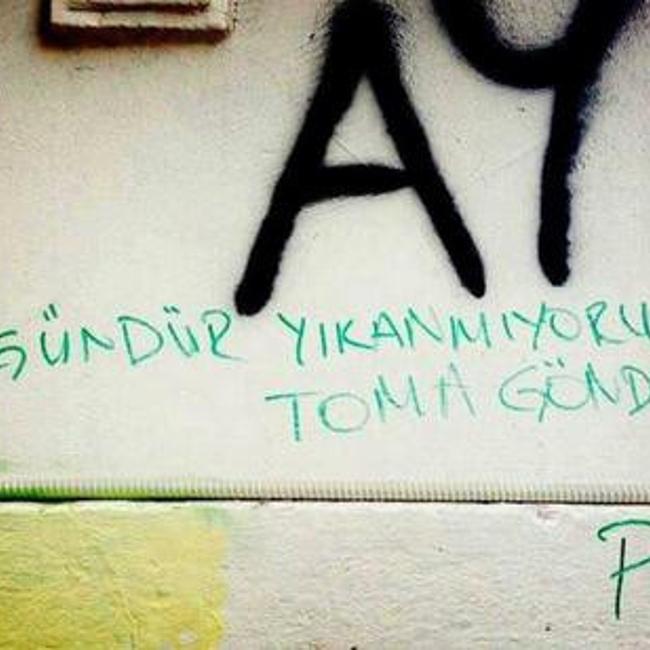 AY
GÜNDÜR YIKANMIYORU
TOMA GÖND
P